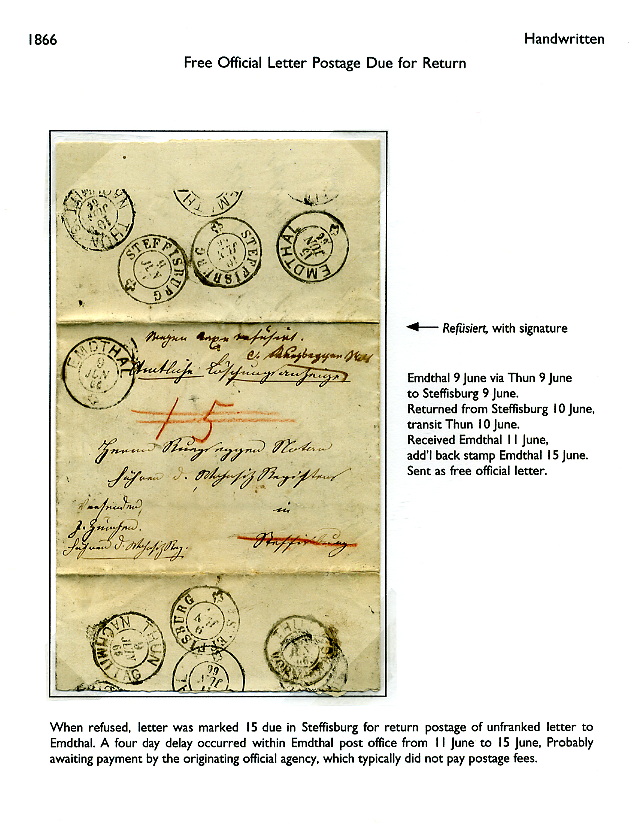 1866
Handwritten
Free Official Letter Postage Due for Return
STEFFISBURG
STEFFISBURG
EMDTHAL
EMDTHAL
9
JUN
66
Wegen
refüsiert.
Amtliche Löschungsanzeige
15
Herrn
Notar
Führer d. Wohnsitz Registers
in
Steffisburg
Führer d. Wohnsitz Reg.
← Refüsiert, with signature
Emdthal 9 June via Thun 9 June
to Steffisburg 9 June.
Returned from Steffisburg 10 June,
transit Thun 10 June.
Received Emdthal 11 June,
add'l back stamp Emdthal 15 June.
Sent as free official letter.
THUN
NACHMITTAG
STEFFISBURG
THUN
When refused, letter was marked 15 due in Steffisburg for return postage of unfranked letter to
Emdthal. A four day delay occurred within Emdthal post office from 11 June to 15 June, Probably
awaiting payment by the originating official agency, which typically did not pay postage fees.